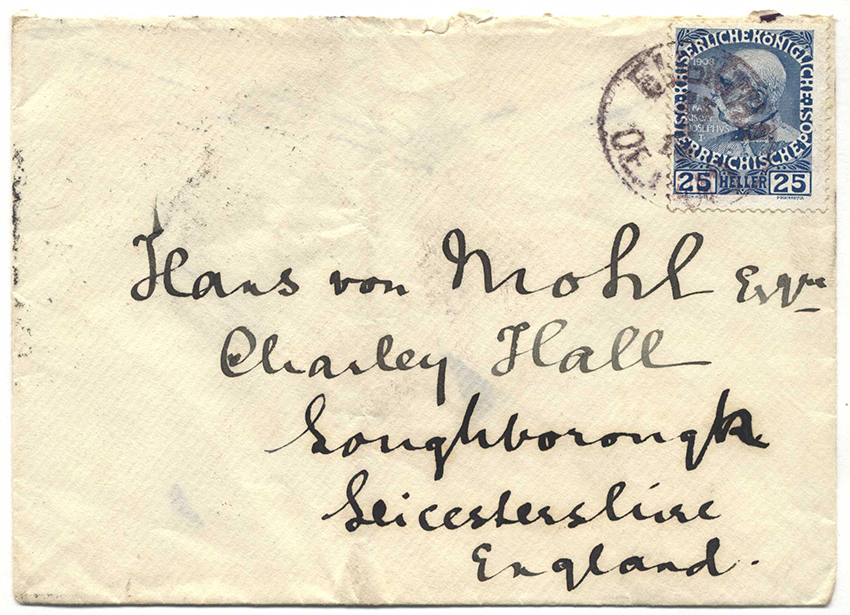 KAISERLICHE KÖNIGLICHE
ÖSTERREICHISCHE POST
1908
JOSEPHVS
I
25 HELLER 25
Hans von Mohl Esqre
Charley Hall
Loughborough
Leicestershire
England.